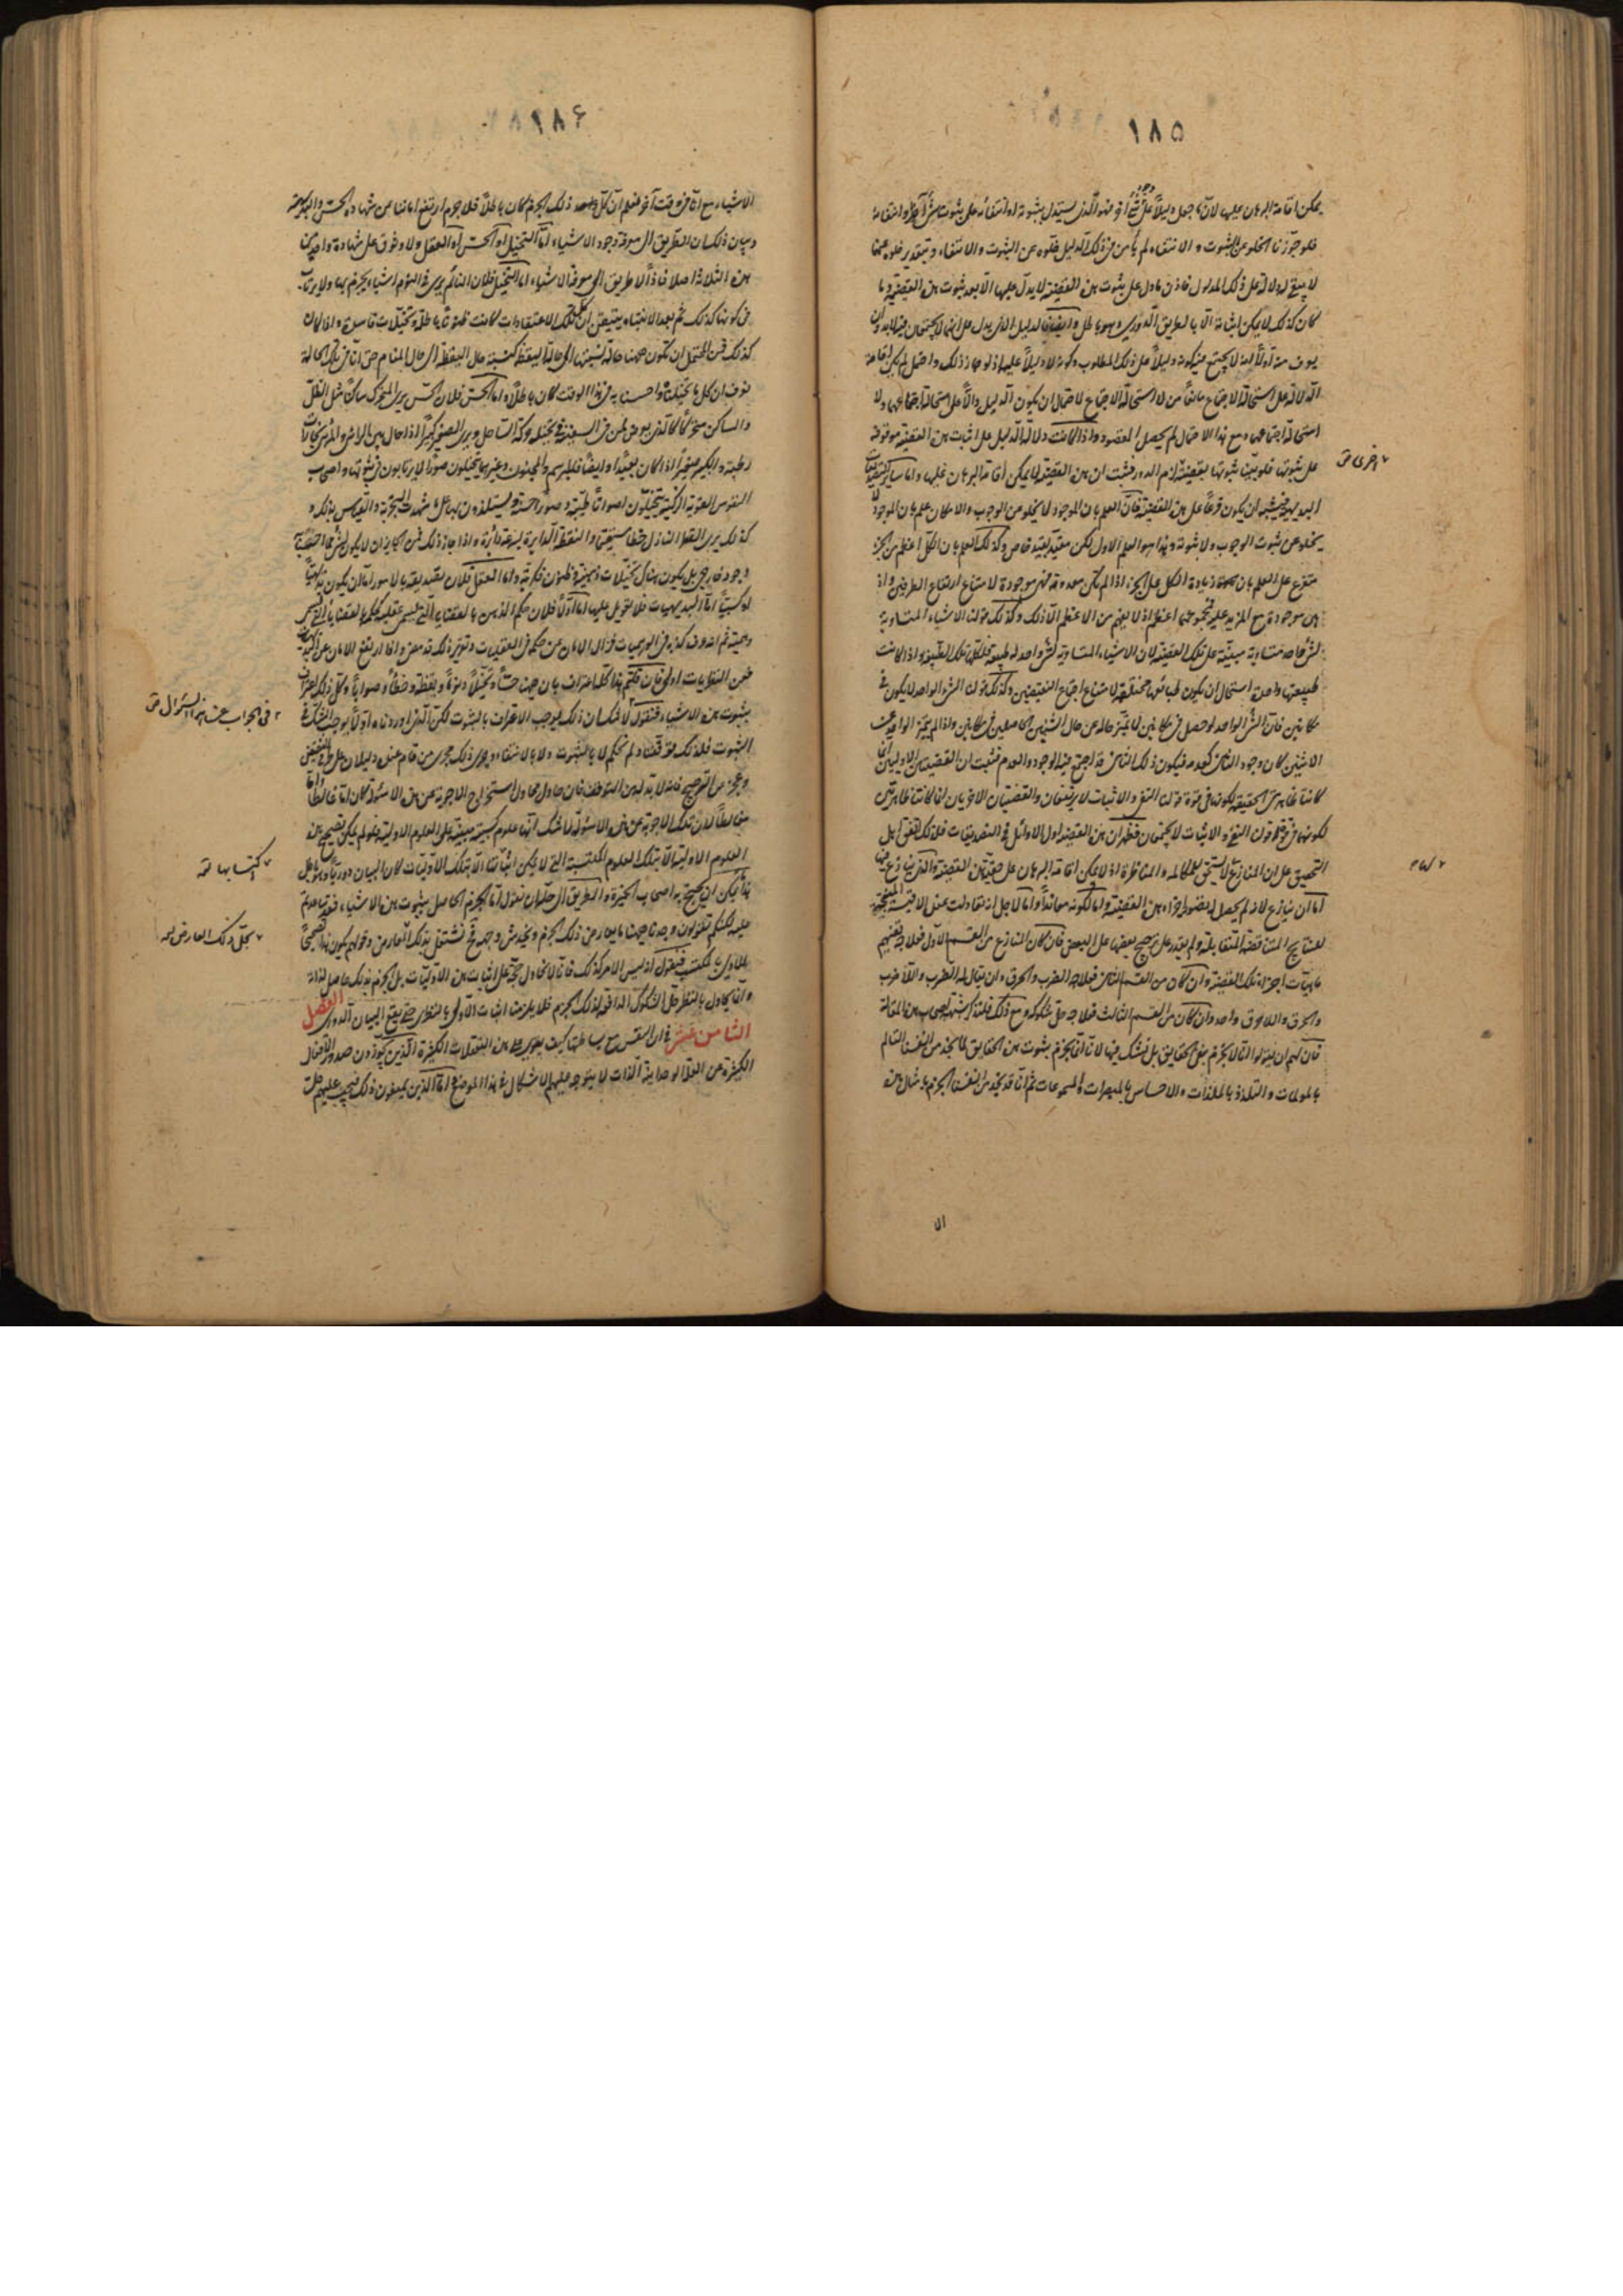 ١٨٥
يمكن اقامة البرهان عليها لان ما جعل دليلاً على شئ آخر فهو الذى يستدل بثبوته او انتفائه على ثبوت شئ آخر او انتفائه
فلو جوزنا الخلو عن الثبوت و الانتفاء لم يأمن فى ذلك الدليل خلوه عن الثبوت و الانتفاء و بتقدير خلوه عنهما
لا يبقى له دلالة على ذلك المدلول فاذن ما دل على ثبوت هذه القضية لا يدل عليها الا بعد ثبوت هذه القضية و ما
كان كذلك لا يمكن اثباته الا بالطريق الدورى و هو باطل و ايضا فالدليل الذى يدل على انهما لا يجتمعان فيه لابد و ان
يعرف منه اولاً انه لا يجتمع فيه كونه دليلاً على ذلك المطلوب و كونه لا دليلاً عليه اذ لو جاز ذلك و احتمل لم يكن اقامة
الدلالة على استحالة الاجتماع مانعاً من لا استحالة الاجتماع لاحتمال ان يكون الدليل دالاً على استحالة اجتماعهما و لا
استحالة اجتماعهما و مع هذا الاحتمال لم يحصل المقصود و اذا كانت دلالة الدليل على اثبات هذه القضية موقوفة
على ثبوتها فلو بين ثبوتها بقضية لزم الدور فثبت ان هذه القضية لا يمكن اقامة البرهان عليها و اما ساير القضايا
البديهية فيشبه ان يكون فرعاً على هذه القضية فان العلم بان الموجود لا يخلو من الوجوب و الامكان علم بان الموجود لا
يخلو عن ثبوت الوجوب و لا ثبوته و هذا هو العلم الاول لكن مقيد بقيد خاص و كذلك العلم بان الكل اعظم من الجزء
متفرع على العلم بان زيادة الكل على الجزء اذا لم تكن معدومة فهى موجودة لامتناع ارتفاع الطرفين و اذ
هى موجودة مع المزيد عليه فمجموعهما اعظم اذ لا يفهم من الاعظم الا ذلك و كذلك قولنا الاشياء المتساوية
لشئ واحد متساوية مبنية على تلك القضية لان الاشياء المتساوية لشئ واحد له طبيعة و اذا كانت
طبيعتها واحدة استحال ان يكون طبايعها مختلفة لامتناع اجتماع النقيضين و كذلك قولنا الشئ الواحد لا يكون فى
مكانين فان الشئ الواحد لو حصل فى مكانين لما تميز حاله عن حال الشيئين الحاصلين فى مكانين و اذا لم يتميز الواحد عن
الاثنين كان وجود الثانى كعدمه فيكون ذلك الثانى قد اجتمع فيه الوجود و العدم فثبت ان القضيتين الاوليين انما
كانتا ظاهرتى الحقيقة لكونهما فى قوة قولنا النفى و الاثبات لا يرتفعان و القضيتان الاخريان انما كانتا ظاهرتين
لكونهما فى قوة قولنا النفى و الاثبات لا يجتمعان فظهر ان هذه القضية اول الاوائل فى التصديقات فلذلك اتفق اهل
التحقيق على ان المنازع لا يستحق المكالمة و المناظرة اذ لا يمكن اقامة البرهان على حقية هذه القضية و الذى ينازع فيها
اما ان ينازع لانه لم يحصل له تصور اجزاء هذه القضية و اما لكونه معانداً و اما لاجل انه تعادلت عنده الاقيسة المنتجة
للنتايج المتناقضة المتقابلة و لم يقدر على ترجيح بعضها على البعض فان كان المنازع من القسم الاول فعلاجه تفهيم
ماهيات اجزاء تلك القضية و ان كان من القسم الثانى فعلاجه الضرب و الحرق و ان يقال له الضرب و اللاضرب
و الحرق و اللاحرق واحد و ان كان من القسم الثالث فعلاجه حل شكوكه و مع ذلك فلنذكر شبه اصحاب هذه المقالة
فان لهم ان يقولوا انا لا نجزم بنفى الحقايق بل نشك فيها لانا انما نجزم بثبوت هذه الحقايق لما نجد من انفسنا التألم
بالمولمات و التلذذ بالملذات و الاحساس بالمبصرات و المسموعات ثم انا قد نجد من انفسنا الجزم بامثال هذه
اخرى ص
الا
١٨٦
الاشياء مع انا فى وقت آخر نعلم ان كل ذلك الجزم كان باطلاً فلا جرم ارتفع اماننا عن شهادة الحس و البديهة
و بيان ذلك ان الطريق الى معرفة وجود الاشياء اما التخيل او الحس او العقل و لا وثوق على شهادة واحد من
هذه الثلاثة اصلا فاذاً لا طريق الى معرفة الاشياء اما التخيل فلان النائم يرى فى النوم اشياء يجزم بها و لا يرتاب
فى كونها كذلك ثم بعد الانتباه يتيقن ان تلك الاعتقادات كانت ظنوناً باطلة و تخيلات فاسدة و اذا كان
كذلك فمن المحتمل ان تكون ههنا حالة نسبتها الى حالة اليقظة كنسبة حال اليقظة الى حال المنام حتى انا فى تلك الحالة
نعرف ان كل ما تخيلناه و احسسنا به فى هذا الوقت كان باطلاً و اما الحس فلان الحس يرى المتحرك ساكناً مثل الظل
و الساكن متحركاً كالذى يعرض لمن فى السفينة فى تخيله حركة الساحل و يرى الصغير كبيراً اذا حال بين الرائى و المرئى بخارات
رطبة و الكبير صغيراً اذا كان بعيداً و ايضاً فالمبرسم و المجنون و غيرهما يتخيلون صوراً لا يرتابون فى ثبوتها و اصحاب
النفوس القوية الزكية يتخيلون اصواتاً طيبة و صوراً حسنة و يستلذون بها على ما شهدت التجربة و القياس بذلك و
كذلك يرى القطر النازل خطا مستقيماً و النقطة الدايرة بسرعة دائرة و اذا جاز ذلك فمن الجايز ان لا يكون لشئ مما احسسنا به
وجود خارجى بل يكون هناك تخيلات ذهنية و ظنون فكرية و اما العقل فلان تصديقه بالامور اما ان يكون بديهياً
او كسبياً اما البديهيات فلا تعويل عليها اما اولاً فلان حكم الذهن بالقضايا التى تسمى عقلية كحكمه بالقضايا التى تسمى
وهمية ثم انه عرف كذبه فى الوهميات فزال الامان عن حكمه فى العقليات و تقرير ذلك قد مضى و اذا ارتفع الامان عن البديهيات
فعن النظريات اولى فان قلتم هذا كله اعتراف بان ههنا حساً و تخيلاً و نوماً و يقظة و خطأً و صواباً و كل ذلك اعتراف
بثبوت هذه الاشياء فنقول لا شك ان ذلك يوجب الاعتراف بالثبوت لكن الذى اوردناه اولاً يوجب الشك فى
الثبوت فلذلك توقفنا و لم نحكم لا بالثبوت و لا بالانتفاء و يجرى ذلك مجرى من قام عنده دليلان على طرفى النقيض
و عجز عن الترجيح فانه لابد له من التوقف فان حاول محاول استخراج الاجوبة عن هذه الاسئولة كان اما غالطاً و اما
مغالطاً لان تلك الاجوبة عن هذه الاسئولة لا شك انها علوم كسبية مبنية على العلوم الاولية فلو لم يكن تصحيح هذه
العلوم الاولية الا بتلك العلوم المكتسبة التى لا يمكن اثباتها الا بتلك الاوليات كان البيان دورياً و باطل
هذا ما يمكن ان يحتج به اصحاب الحيرة و الطريق الى حلها ان نقول اما الجزم الحاصل بثبوت هذه الاشياء فقد ساعدتم
عليه لكنكم تقولون وجدنا ههنا ما يعارض ذلك الجزم و يخدش وجهه فنشتغل بذلك المعارض و قولهم يكون هذا تصحيحاً
للاولى بالمكتسب فنقول انه ليس الامر كذلك فانا لا نحاول حجة على اثبات هذه الاوليات بل الجزم بذلك حاصل لذاته
و انما يحاول بالنظر حل الشكوك الدافعة لذلك الجزم فلا يلزمنا اثبات الاولى بالنظرى حتى يقع البيان الدورى الفصل
الثامن عشر فى ان النفس مع بساطتها كيف يقوى على هذه التعقلات الكثيرة الذين يجوزون صدور الافعال
الكثيرة عن العلة الواحدانية الذات لا يتوجه عليهم الاشكال فى هذا الموضع و اما الذين يمنعون ذلك فيجب عليهم حل
فى الجواب عن هذا السؤال ص
اكتسابها
بحل ذلك العارض